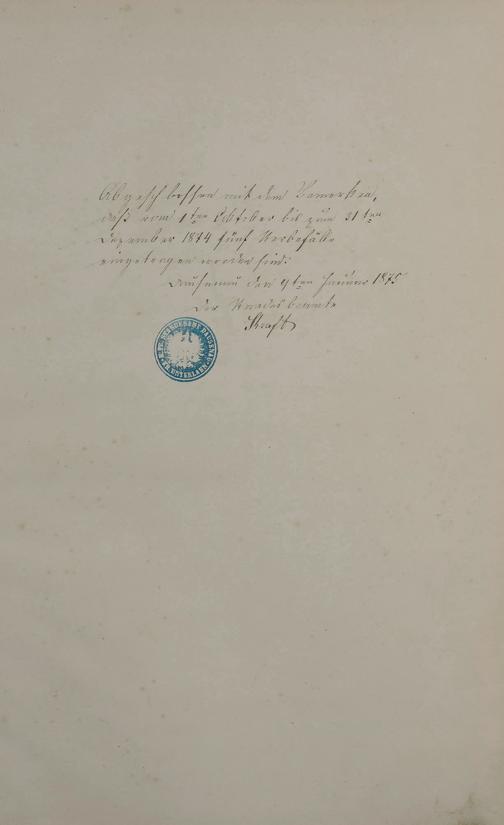 Abgeschlossen mit dem Bemerken,
daß vom 1ten Oktober bis zum 31ten
Dezember 1874 fünf Sterbefälle
eingetragen worden sind.
den 9ten Januar 1875
Der Standesbeamte
Kraft